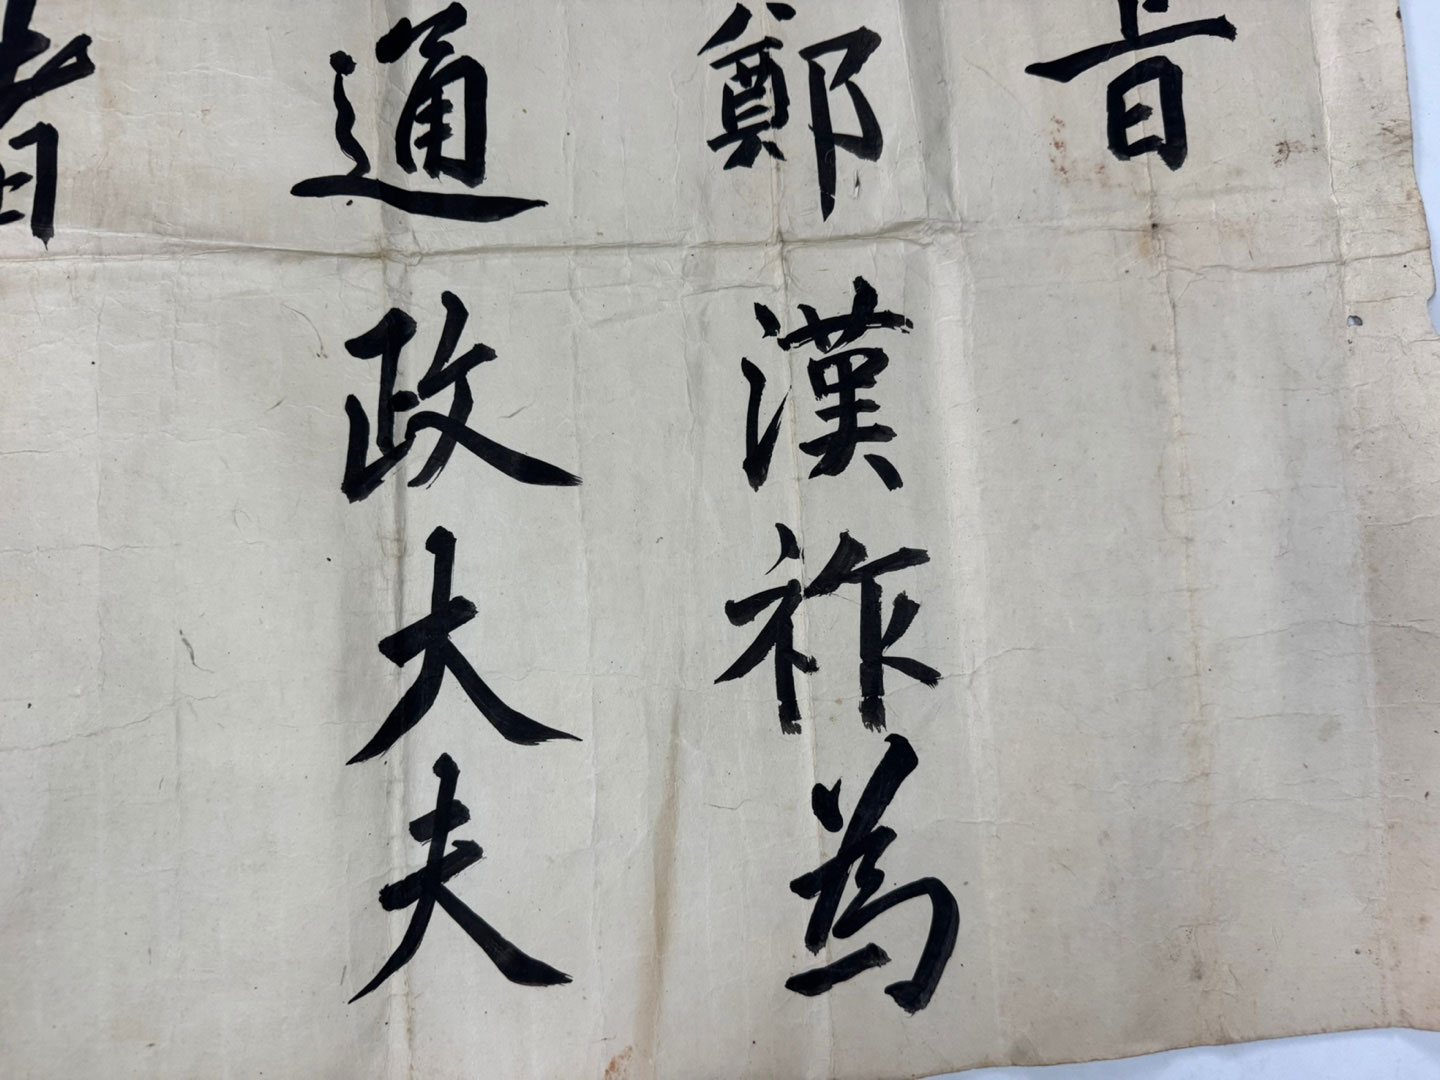 旨
鄭漢祚為
通政大夫
者